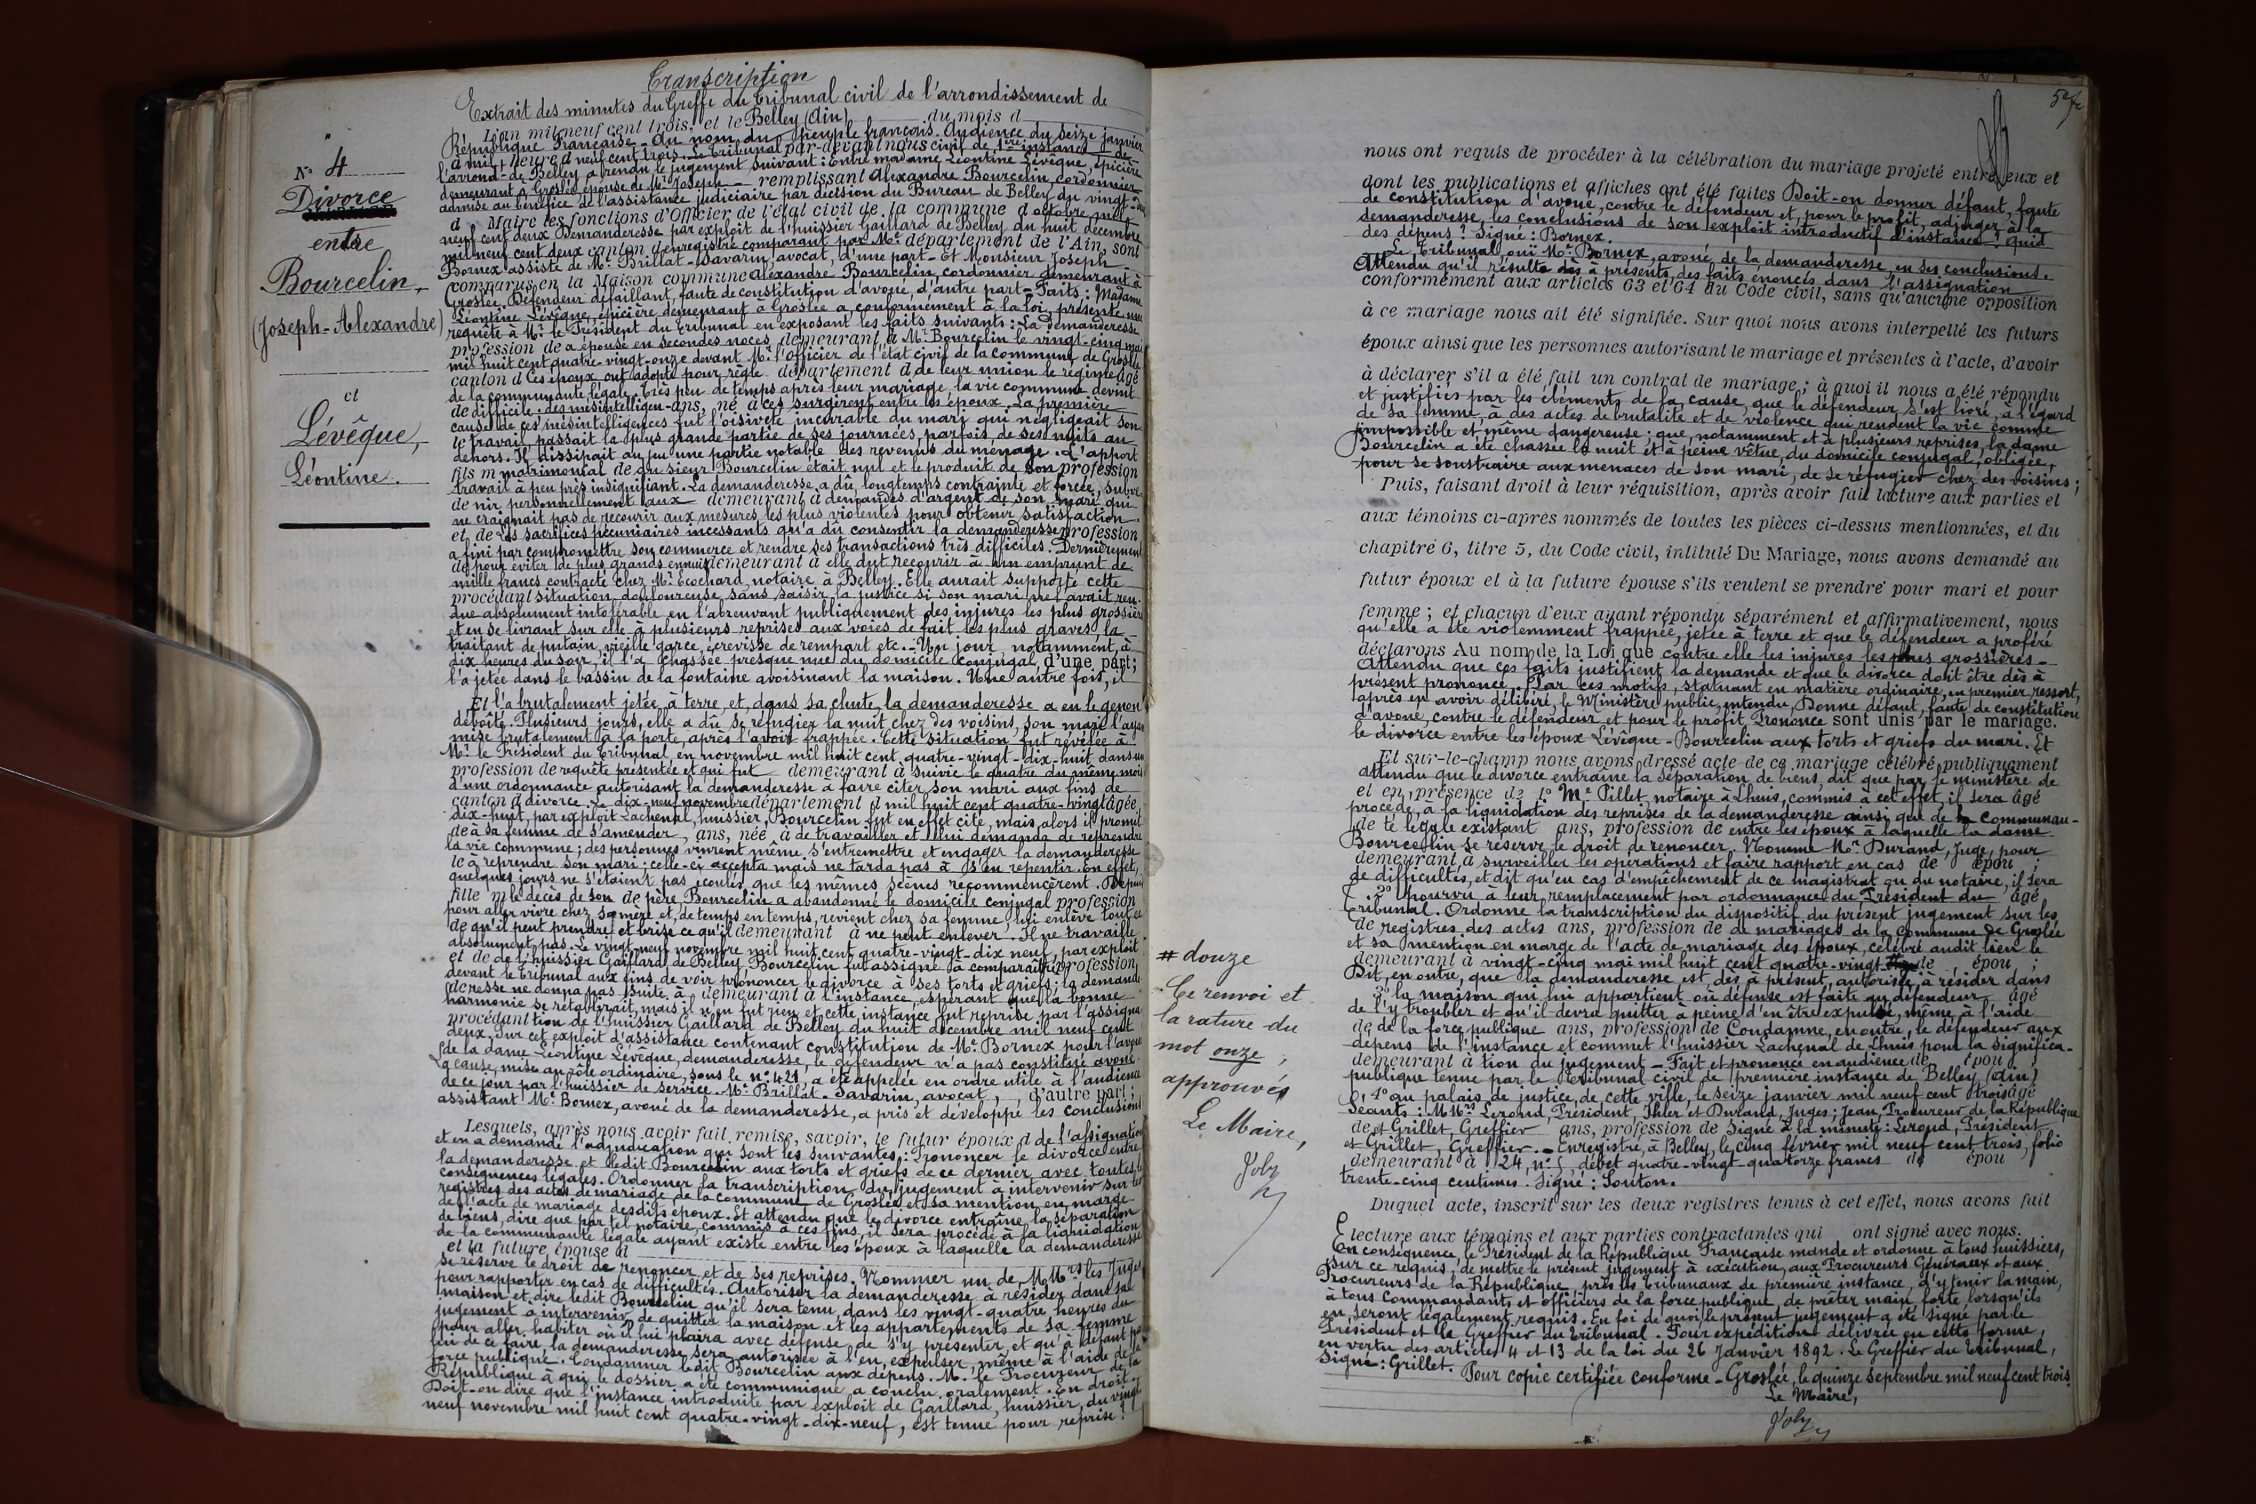 Transcription
Extrait des minutes du Greffe du Tribunal civil de l'arrondissement de
L'an mil neuf cent trois, et le Belley (Ain) du mois d
République Française - Au nom du peuple français. Audience du seize janvier
à mil heure d neuf cent trois. Le Tribunal par-devant nous civil de 1ère instance de
l'arrond- de Belley a rendu le jugement suivant : Entre madame Léontine Lévêque, épicière
demeurant à Groslée épouse de Mr Joseph - remplissant Alexandre Bourcelin, cordonnier
admise au bénéfice de l'assistance judiciaire par décision du Bureau de Belley du vingt-
d Maire les fonctions d'Officier de l'état civil de la commune d octobre mil
neuf cent deux Demanderesse par exploit de l'huissier Gaillard de Belley du huit décembre
mil neuf cent deux canton d enregistré comparant par Me département de l'Ain, sont
Bornex assisté de Me Brillat-Savarin, avocat, d'une part - Et Monsieur Joseph
comparus en la Maison commune Alexandre Bourcelin, cordonnier demeurant à
Groslée, Défendeur défaillant, faute de constitution d'avoué, d'autre part - Faits : Madame
Léontine Lévêque, épicière demeurant à Groslée a, conformément à la loi, présenté une
requête à Mr le Président du Tribunal en exposant les faits suivants : La demanderesse
profession de a épousé en secondes noces, demeurant à Mr Bourcelin le vingt-cinq mai
mil huit cent quatre-vingt-onze devant Mr l'officier de l'état civil de la commune de Groslée
canton d Ces époux ont adopté pour règle département d de leur union le régime âgé
de la communauté légale. Très peu de temps après leur mariage la vie commune devint
de difficile. des mésintelligen- ans, né à ces surgèrent entre les époux. La première
cause de ces mésintelligences fut l'oisiveté incurable du mari qui négligeait son
le travail, passait la plus grande partie de ses journées, parfois de ses nuits au
dehors. Il dissipait au jeu une partie notable des revenus du ménage. L'apport
fils m matrimonial de du sieur Bourcelin était nul et le produit de son profession
travail à peu près insignifiant. La demanderesse, a dû, longtemps contrainte et forcée, subve-
de nir personnellement aux demeurant à demandes d'argent de son mari, qui
ne craignait pas de recourir aux mesures les plus violentes pour obtenir satisfaction.
et de Les sacrifices pécuniaires incessants qu'a dû consentir la demanderesse profession
a fini par compromettre son commerce et rendre ses transactions très difficiles. Dernièrement
de pour éviter de plus grands ennuis demeurant à elle dut recourir à un emprunt de
mille francs contracté chez Mr Ecochard, notaire à Belley. Elle aurait supporté cette
procédant situation douloureuse sans saisir la justice si son mari ne l'avait ren-
due absolument intolérable en l'abreuvant publiquement des injures les plus grossières
et en se livrant sur elle à plusieurs reprises aux voies de fait les plus graves, la
traitant de putain, vieille garce, écrevisse de rempart etc. - Un jour, notamment, à
dix heures du soir, il l'a chassée presque nue du domicile conjugal, d'une part;
l'a jetée dans le bassin de la fontaine avoisinant la maison. Une autre fois, il
Et l'a brutalement jetée, à terre, et, dans sa chute, la demanderesse a eu le genou
déboîté. Plusieurs jours, elle a dû se réfugier la nuit chez des voisins, son mari l'ayant
mise brutalement à la porte, après l'avoir frappée. Cette situation fut révélée à
Mr le Président du Tribunal, en novembre mil huit cent quatre-vingt-dix-huit dans une
profession de requête présentée et qui fut demeurant à suivie le quatre du même mois
d'une ordonnance autorisant la demanderesse à faire citer son mari aux fins de
canton d divorce. Le dix-neuf novembre département d mil huit cent quatre-vingt âgée
dix-huit, par exploit Lachenal, huissier, Bourcelin fut en effet cité, mais, alors il promit
de à sa femme de s'amender, ans, née à de travailler et lui demanda de reprendre
la vie commune; des personnes vinrent même s'entremettre et engager la demanderesse
le à reprendre son mari : celle-ci accepta mais ne tarda pas à s'en repentir. En effet,
quelques jours ne s'étaient pas écoulés, que les mêmes scènes recommencèrent. Depuis
fille m le décès de son de père Bourcelin a abandonné le domicile conjugal profession
pour aller vivre chez sa mère et, de temps en temps, revient chez sa femme, lui enlève tout ce
de qu'il peut prendre et brise ce qu'il demeurant à ne peut enlever. Il ne travaille
absolument pas. Le vingt-neuf novembre mil huit cent quatre-vingt-dix neuf, par exploit
et de de l'huissier Gaillard de Belley, Bourcelin fut assigné à comparaître profession
devant le tribunal aux fins de voir prononcer le divorce à ses torts et griefs : la demande
de resse ne donna pas suite à demeurant à l'instance, espérant que la bonne
harmonie se rétablirait, mais il n'en fut rien et cette instance fut reprise par l'assigna-
procédant tion de l'huissier Gaillard de Belley du huit décembre mil neuf cent
deux. Sur cet exploit d'assistance contenant constitution de Me Bornex pour l'avoué
de la dame Léontine Lévêque, demanderesse, le défendeur n'a pas constitué avoué.
La cause, mise au rôle ordinaire, sous le n° 421, a été appelée en ordre utile à l'audience
de ce jour par l'huissier de service. Me Brillat-Savarin, avocat, d'autre part;
assistant Me Bornex, avoué de la demanderesse, a pris et développé les conclusions
Lesquels, après nous avoir fait remise, savoir, le futur époux d de l'assignation
et en a demandé l'adjudication qui sont les suivantes : Prononcer le divorce entre
la demanderesse et ledit Bourcelin aux torts et griefs de ce dernier avec toutes les
conséquences légales. Ordonner la transcription du jugement à intervenir sur les
registres des actes de mariage de la commune de Groslée et sa mention en marge
de l'acte de mariage desdits époux. Et attendu que le divorce entraîne la séparation
de biens, dire que par tel notaire, commis à ces fins, il sera procédé à la liquidation
de la communauté légale ayant existé entre les époux à laquelle la demanderesse
et la future épouse d
se réserve le droit de renoncer et de ses reprises. Nommer un de MMrs les Juges
pour rapporter en cas de difficultés. Autoriser la demanderesse à résider dans sa
maison et, dire ledit Bourcelin qu'il sera tenu dans les vingt-quatre heures du
jugement à intervenir, de quitter la maison et les appartements de sa femme
pour aller habiter où il lui plaira avec défense de s'y présenter, et qu'à défaut par
lui de ce faire, la demanderesse sera autorisée à l'en expulser, même à l'aide de la
force publique. Condamner ledit Bourcelin aux dépens. M. le Procureur de la
République à qui le dossier a été communiqué a conclu oralement. En droit
Doit-on dire que l'instance introduite par exploit de Gaillard, huissier, du vingt
neuf novembre mil huit cent quatre-vingt-dix-neuf, est tenue pour reprise?
N° 4
Divorce
entre
Bourcelin,
(Joseph-Alexandre)
et
Lévêque,
Léontine.
nous ont requis de procéder à la célébration du mariage projeté entre eux et
dont les publications et affiches ont été faites Doit-on donner défaut, faute
de constitution d'avoué, contre le défendeur et, pour le profit, adjuger à la
demanderesse, les conclusions de son exploit introductif d'instance? quid
des dépens? Signé : Bornex.
Le Tribunal, ouï Me Bornex, avoué, de la demanderesse, en ses conclusions.
Attendu qu'il résulte dès à présents, des faits énoncés dans l'assignation
conformément aux articles 63 et 64 du Code civil, sans qu'aucune opposition
à ce mariage nous ait été signifiée. Sur quoi nous avons interpellé les futurs
époux ainsi que les personnes autorisant le mariage et présentes à l'acte, d'avoir
à déclarer s'il a été fait un contrat de mariage; à quoi il nous a été répondu
et justifiés par les éléments de la cause, que le défendeur s'est livré, à l'égard
de sa femme, à des actes de brutalité et de violence qui rendent la vie comme
impossible et même dangereuse; que, notamment et à plusieurs reprises, la dame
Bourcelin a été chassée la nuit et à peine vêtue, du domicile conjugal, obligée,
pour se soustraire aux menaces de son mari, de se réfugier chez des voisins;
Puis, faisant droit à leur réquisition, après avoir fait lecture aux parties et
aux témoins ci-après nommés de toutes les pièces ci-dessus mentionnées, et du
chapitre 6, titre 5, du Code civil, intitulé Du Mariage, nous avons demandé au
futur époux et à la future épouse s'ils veulent se prendre pour mari et pour
femme; et chacun d'eux ayant répondu séparément et affirmativement, nous
qu'elle a été violemment frappée, jetée à terre et que le défendeur a proféré
déclarons Au nom de la Loi que contre elle les injures les plus grossières -
Attendu que ces faits justifient la demande et que le divorce doit être dès à
présent prononcé. Par ces motifs, statuant en matière ordinaire, en premier ressort,
après en avoir délibéré, le Ministère public, entendu, Donne défaut, faute de constitution
d'avoué, contre le défendeur et pour le profit, Prononce sont unis par le mariage.
le divorce entre les époux Lévêque-Bourcelin aux torts et griefs du mari. Et
Et sur-le-champ nous avons dressé acte de ce mariage célébré publiquement
Attendu que le divorce entraîne la séparation de biens, dit que par le ministère de
et en présence de 1° Me Pillet, notaire à Lhuis, commis à cet effet, il sera âgé
procédé, à la liquidation des reprises de la demanderesse ainsi que de la communau-
de té légale existant ans, profession de entre les époux à laquelle la dame
Bourcelin se réserve le droit de renoncer. Nomme Mr Durand, Juge, pour
demeurant à surveiller les opérations et faire rapport en cas de épou ;
de difficultés, et dit qu'en cas d'empêchement de ce magistrat ou du notaire, il sera
2° pourvu à leur remplacement par ordonnance du Président du âgé
Tribunal. Ordonne la transcription du dispositif du présent jugement sur les
de registres des actes ans, profession de de mariages de la commune de Groslée
et sa mention en marge de l'acte de mariage des époux, célébré audit lieu le
demeurant à vingt-cinq mai mil huit cent quatre-vingt # de épou ;
Dit, en outre, que la demanderesse est, dès à présent, autorisée, à résider dans
3° la maison qui lui appartient où défense est faite au défendeur âgé
de l'y troubler et qu'il devra quitter à peine d'en être expulsé, même à l'aide
de de la force publique ans, profession de Condamne, en outre, le défendeur aux
dépens de l'instance et commet l'huissier Lachenal de Lhuis pour la significa-
demeurant à tion du jugement - Fait et prononcé en audience de épou ;
publique tenue par le Tribunal civil de première instance de Belley (Ain)
4° au palais de justice, de cette ville, le seize janvier mil neuf cent trois âgé
Séants : MMrs Lerond, Président, Ihler et Durand, Juges; Jean, Procureur de la République
de et Grillet, Greffier ans, profession de Signé à la minute : Lerond, Président
et Grillet, Greffier. - Enregistré, à Belley, le cinq février mil neuf cent trois, folio
demeurant à 24, n° 5, débet quatre-vingt-quatorze francs de épou
trente-cinq centimes. Signé : Souton.
Duquel acte, inscrit sur les deux registres tenus à cet effet, nous avons fait
lecture aux témoins et aux parties contractantes qui ont signé avec nous.
En conséquence, le Président de la République Française mande et ordonne à tous huissiers,
sur ce requis, de mettre le présent jugement à exécution, aux Procureurs Généraux et aux
Procureurs de la République, près les Tribunaux de première instance, d'y tenir la main,
à tous Commandants et officiers de la force publique, de prêter main forte lorsqu'ils
en seront légalement requis. En foi de quoi le présent jugement a été signé par le
Président et le Greffier du Tribunal. Pour expédition délivrée en cette forme,
en vertu des articles 4 et 13 de la loi du 26 Janvier 1892. Le Greffier du Tribunal,
Signé : Grillet. Pour copie certifiée conforme - Groslée, le quinze Septembre mil neuf cent trois.
Le Maire,
Joly
# douze
Ce renvoi et
la rature du
mot onze,
approuvés
Le Maire,
Joly